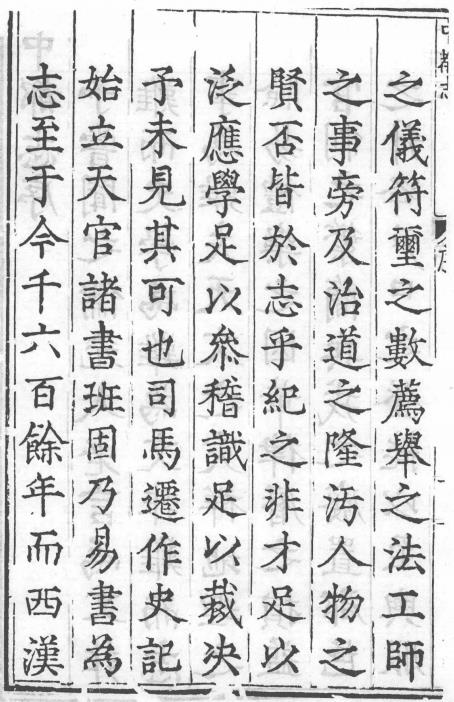 中都志
之儀符璽之數薦舉之法工師
之事旁及治道之隆污人物之
賢否皆於志乎紀之非才足以
泛應學足以叅稽識足以裁决
予未見其可也司馬遷作史記
始立天官諸書班固乃易書為
志至于今千六百餘年而西漢